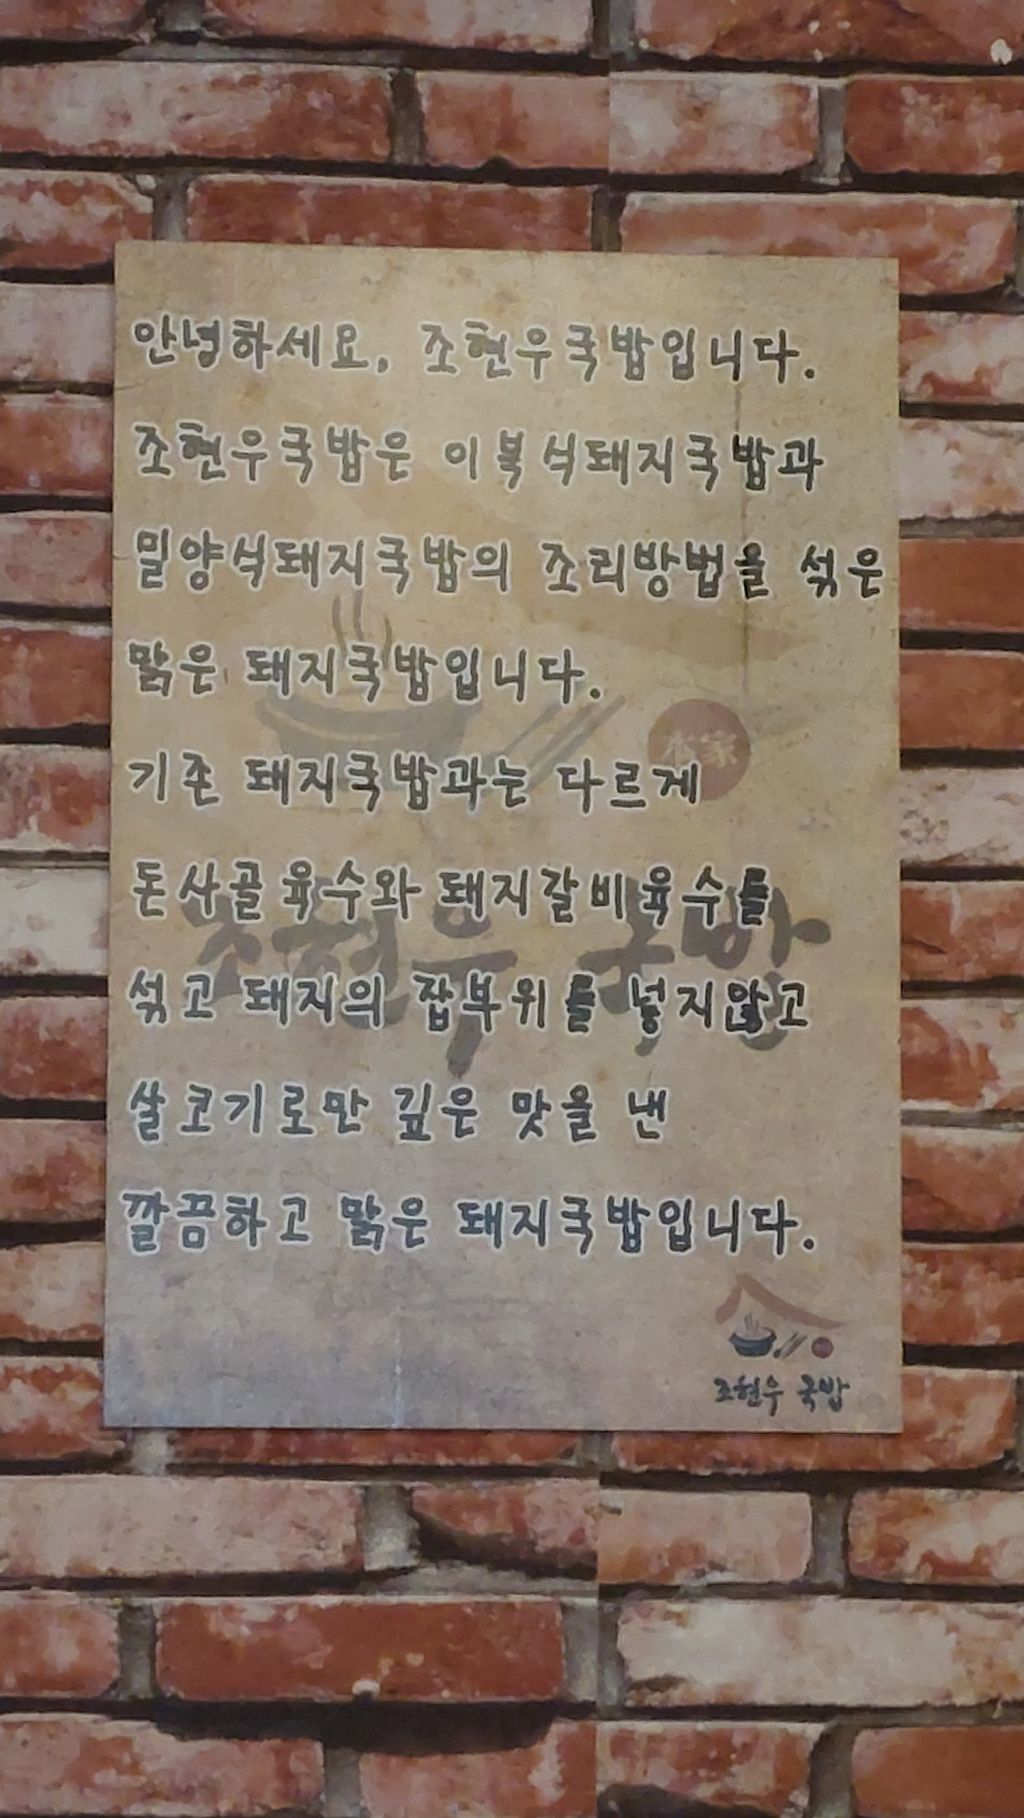 안녕하세요, 조현우국밥입니다.
조현우국밥은 이북식돼지국밥과
밀양식돼지국밥의 조리방법을 섞은
맑은 돼지국밥입니다.
기존 돼지국밥과는 다르게
돈사골육수와 돼지갈비육수를
섞고 돼지의 잡부위를 넣지않고
살코기로만 깊은 맛을 낸
깔끔하고 맑은 돼지국밥입니다.
本家
조현우 국밥
조현우 국밥